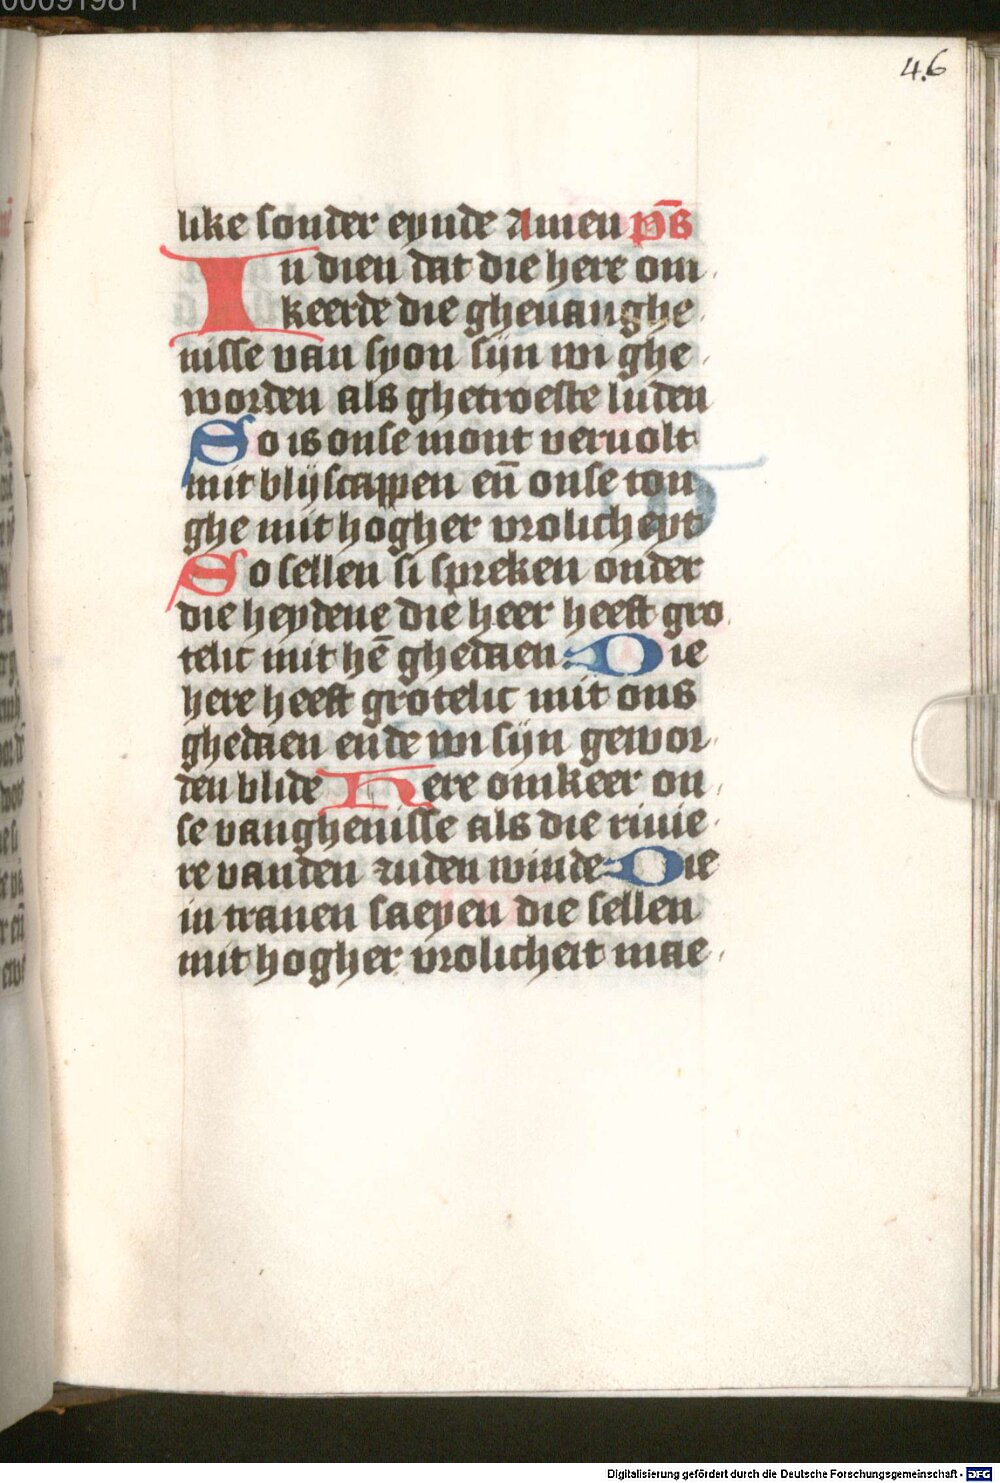 00091981
46
like sonder eynde Amen pс̄s
In dien dat die here om
keerde die gheuanghe
nisse van syon sijn wi ghe
worden als ghetroeste luden
So is onse mont veruolt
mit blijscappen en̄ onse ton
ghe mit hogher vrolicheyt
So sellen si spreken onder
die heydene die heer heeft gro
telic mit hē ghedaen Die
here heeft grotelic mit ons
ghedaen ende wi sijn gewor
den blide Here omkeer on
se vanghenisse als die riuie
re vanden zuden winde Die
in tranen saeyen die sellen
mit hogher vrolicheit mae
Digitalisierung gefördert durch die Deutsche Forschungsgemeinschaft - DFG